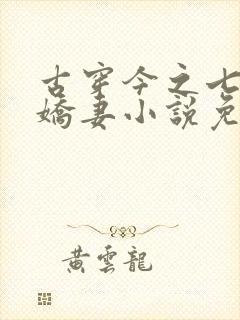 古穿今之七
嬌妻小說免
黃雲龍